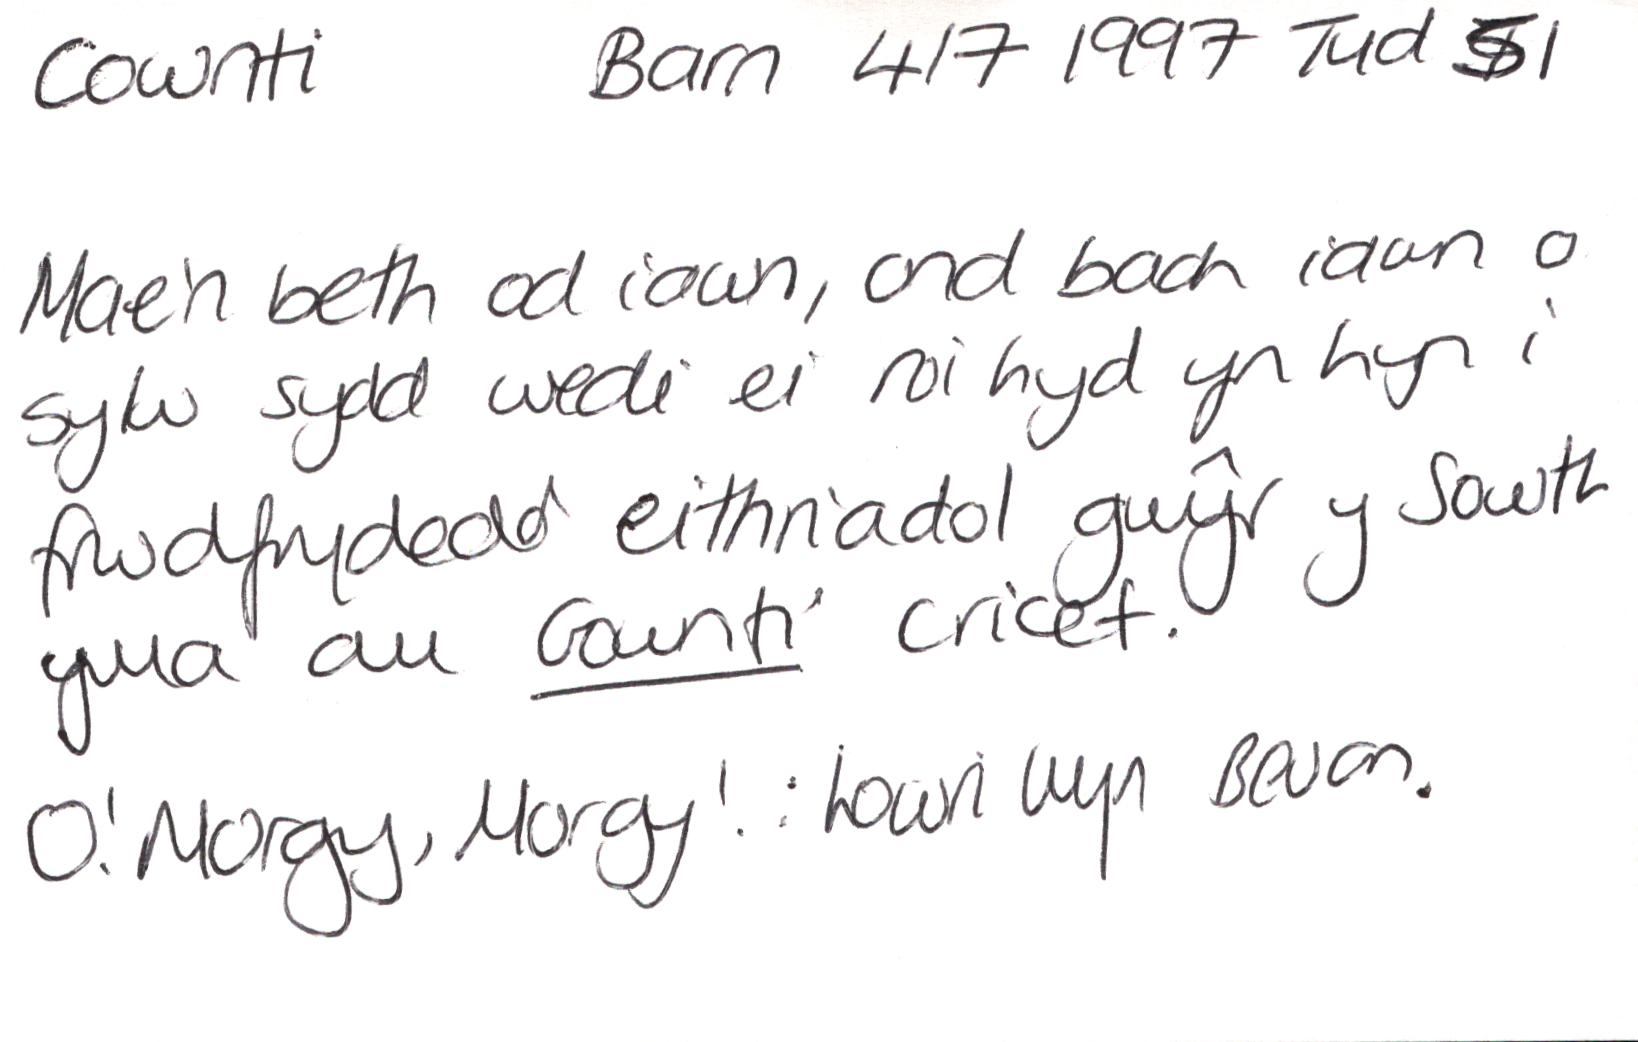 Cownti Barn 4/7 1997 Tud 51
Mae'n beth od iawn, ond bach iawn o
sylw sydd wedi ei roi hyd yn hyn i
frwdfrydedd eithriadol gwŷr y Sowth
yma au Counti' cricet.
O! Morgy, Morgy! : Lowri Wyn Bevan.